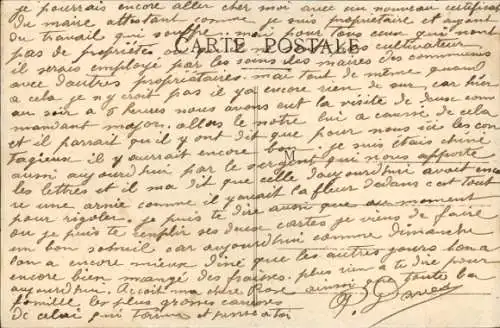 je pourrais encore aller cher moi avec un nouveau certificat
du maire attestant comme je suis propriétaire et ayant
du travail qui souffre. mai pour tous ceux qui nont
pas de propriétés cultivateur
CARTE POSTALE
il serais employé par les soins des maires des communes
avec dautres propriétaires. mai tout de même quand
a cela je ny croit pas il ya encore rien de sur car hier
au soir a 6 heures nous avons eut la visite de deux com
mandant major. allors le notre lui a causé de cela
et il parrait quil y ont dit que pour nous les con
tagieux il y aurrait encore bon. je suis étais chiné
M
aussi aujourdhui par le sergent qui nous apporte
les lettres et il ma dit que celle daujourdhui avait enco
re une armée comme il yavait la fleur dedans cest tout
pour rigoler. je puis te dire aussi que au moment
ou je puis te remplir ses deux cartes je viens de faire
un bon sobreil car aujourdhui comme dimanche
lon a encore mieux diné que les autres jours lon a
encore bien mangé des fraises. plus rien a te dire pour
aujourdhui. Avoit ma chère Rose ainsi que toute la
famille les plus grosses caresses
de celui qui taime et pense a toi